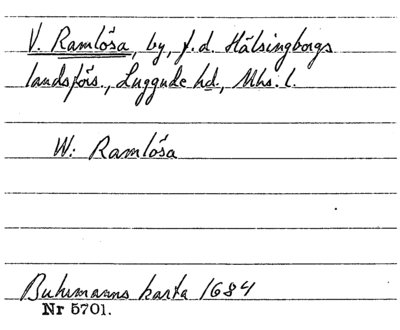 V. Ramlösa, by, f.d. Hälsingborgs
landsförs., Luggude hd., Mhs. l.
W: Ramlösa
Buhrmanns karta 1684
Nr 5701.